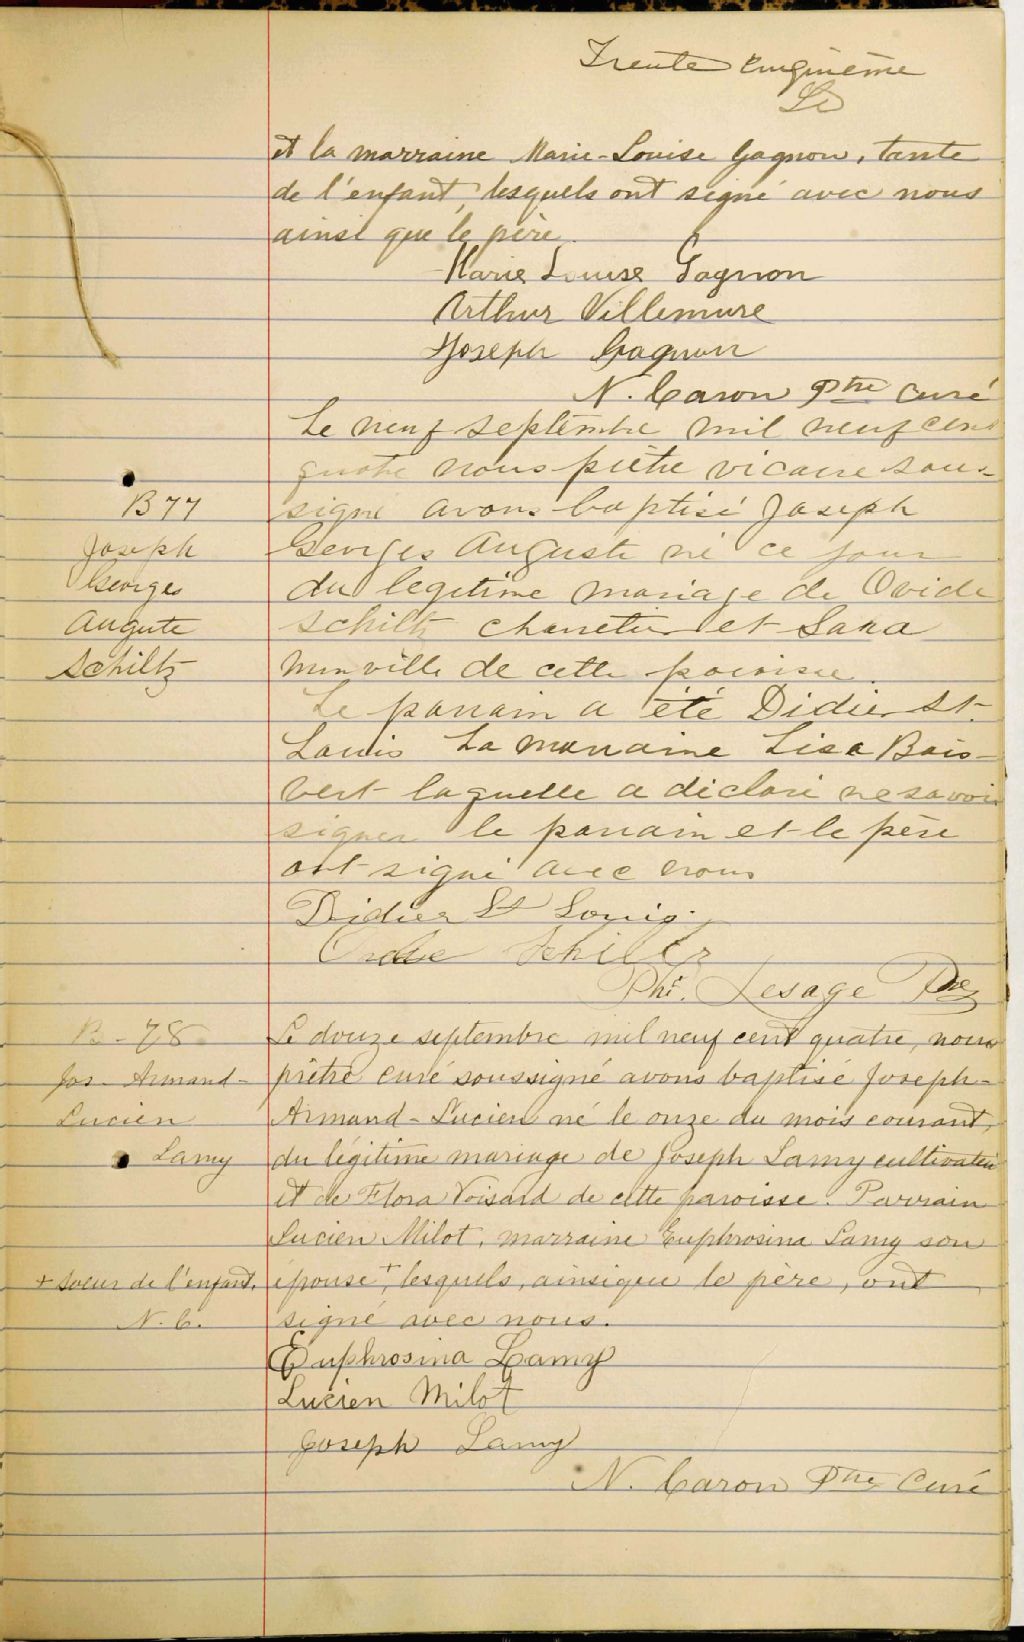 Trente cinquième
et la marraine Marie-Louise Gagnon, tante
de l'enfant, lesquels ont signé avec nous
ainsi que le père.
Marie Louise Gagnon
Arthur Villemure
Joseph Gagnon
N. Caron Ptre Curé
B 77
Joseph
Georges
Augute
Schiltz
Le neuf septembre mil neuf cent
quatre nous prêtre vicaire sous-
signé avons baptisé Joseph
Georges Auguste né ce jour
du légitime mariage de Ovide
Schiltz charretier et Sara
Minville de cette paroisse.
Le parrain a été Didier St-
Louis La marraine Lisa Bois-
vert laquelle a déclaré ne savoir
signer le parrain et le père
ont signé avec nous
Didier St Louis.
Ovide Schiltz
Phi. Lesage Ptre
B-78
Jos-Armand-
Lucien
Lamy
Le douze septembre mil neuf cent quatre, nous
prêtre curé soussigné avons baptisé Joseph-
Armand-Lucien né le onze du mois courant,
du légitime mariage de Joseph Lamy cultivateur
et de Flora Voisard de cette paroisse. Parrain
Lucien Milot, marraine Euphrosina Lamy son
épouse +, lesquels, ainsi que le père, ont
signé avec nous.
+ soeur de l'enfant.
N. C.
Euphrosina Lamy
Lucien Milot
Joseph Lamy
N. Caron Ptre Curé